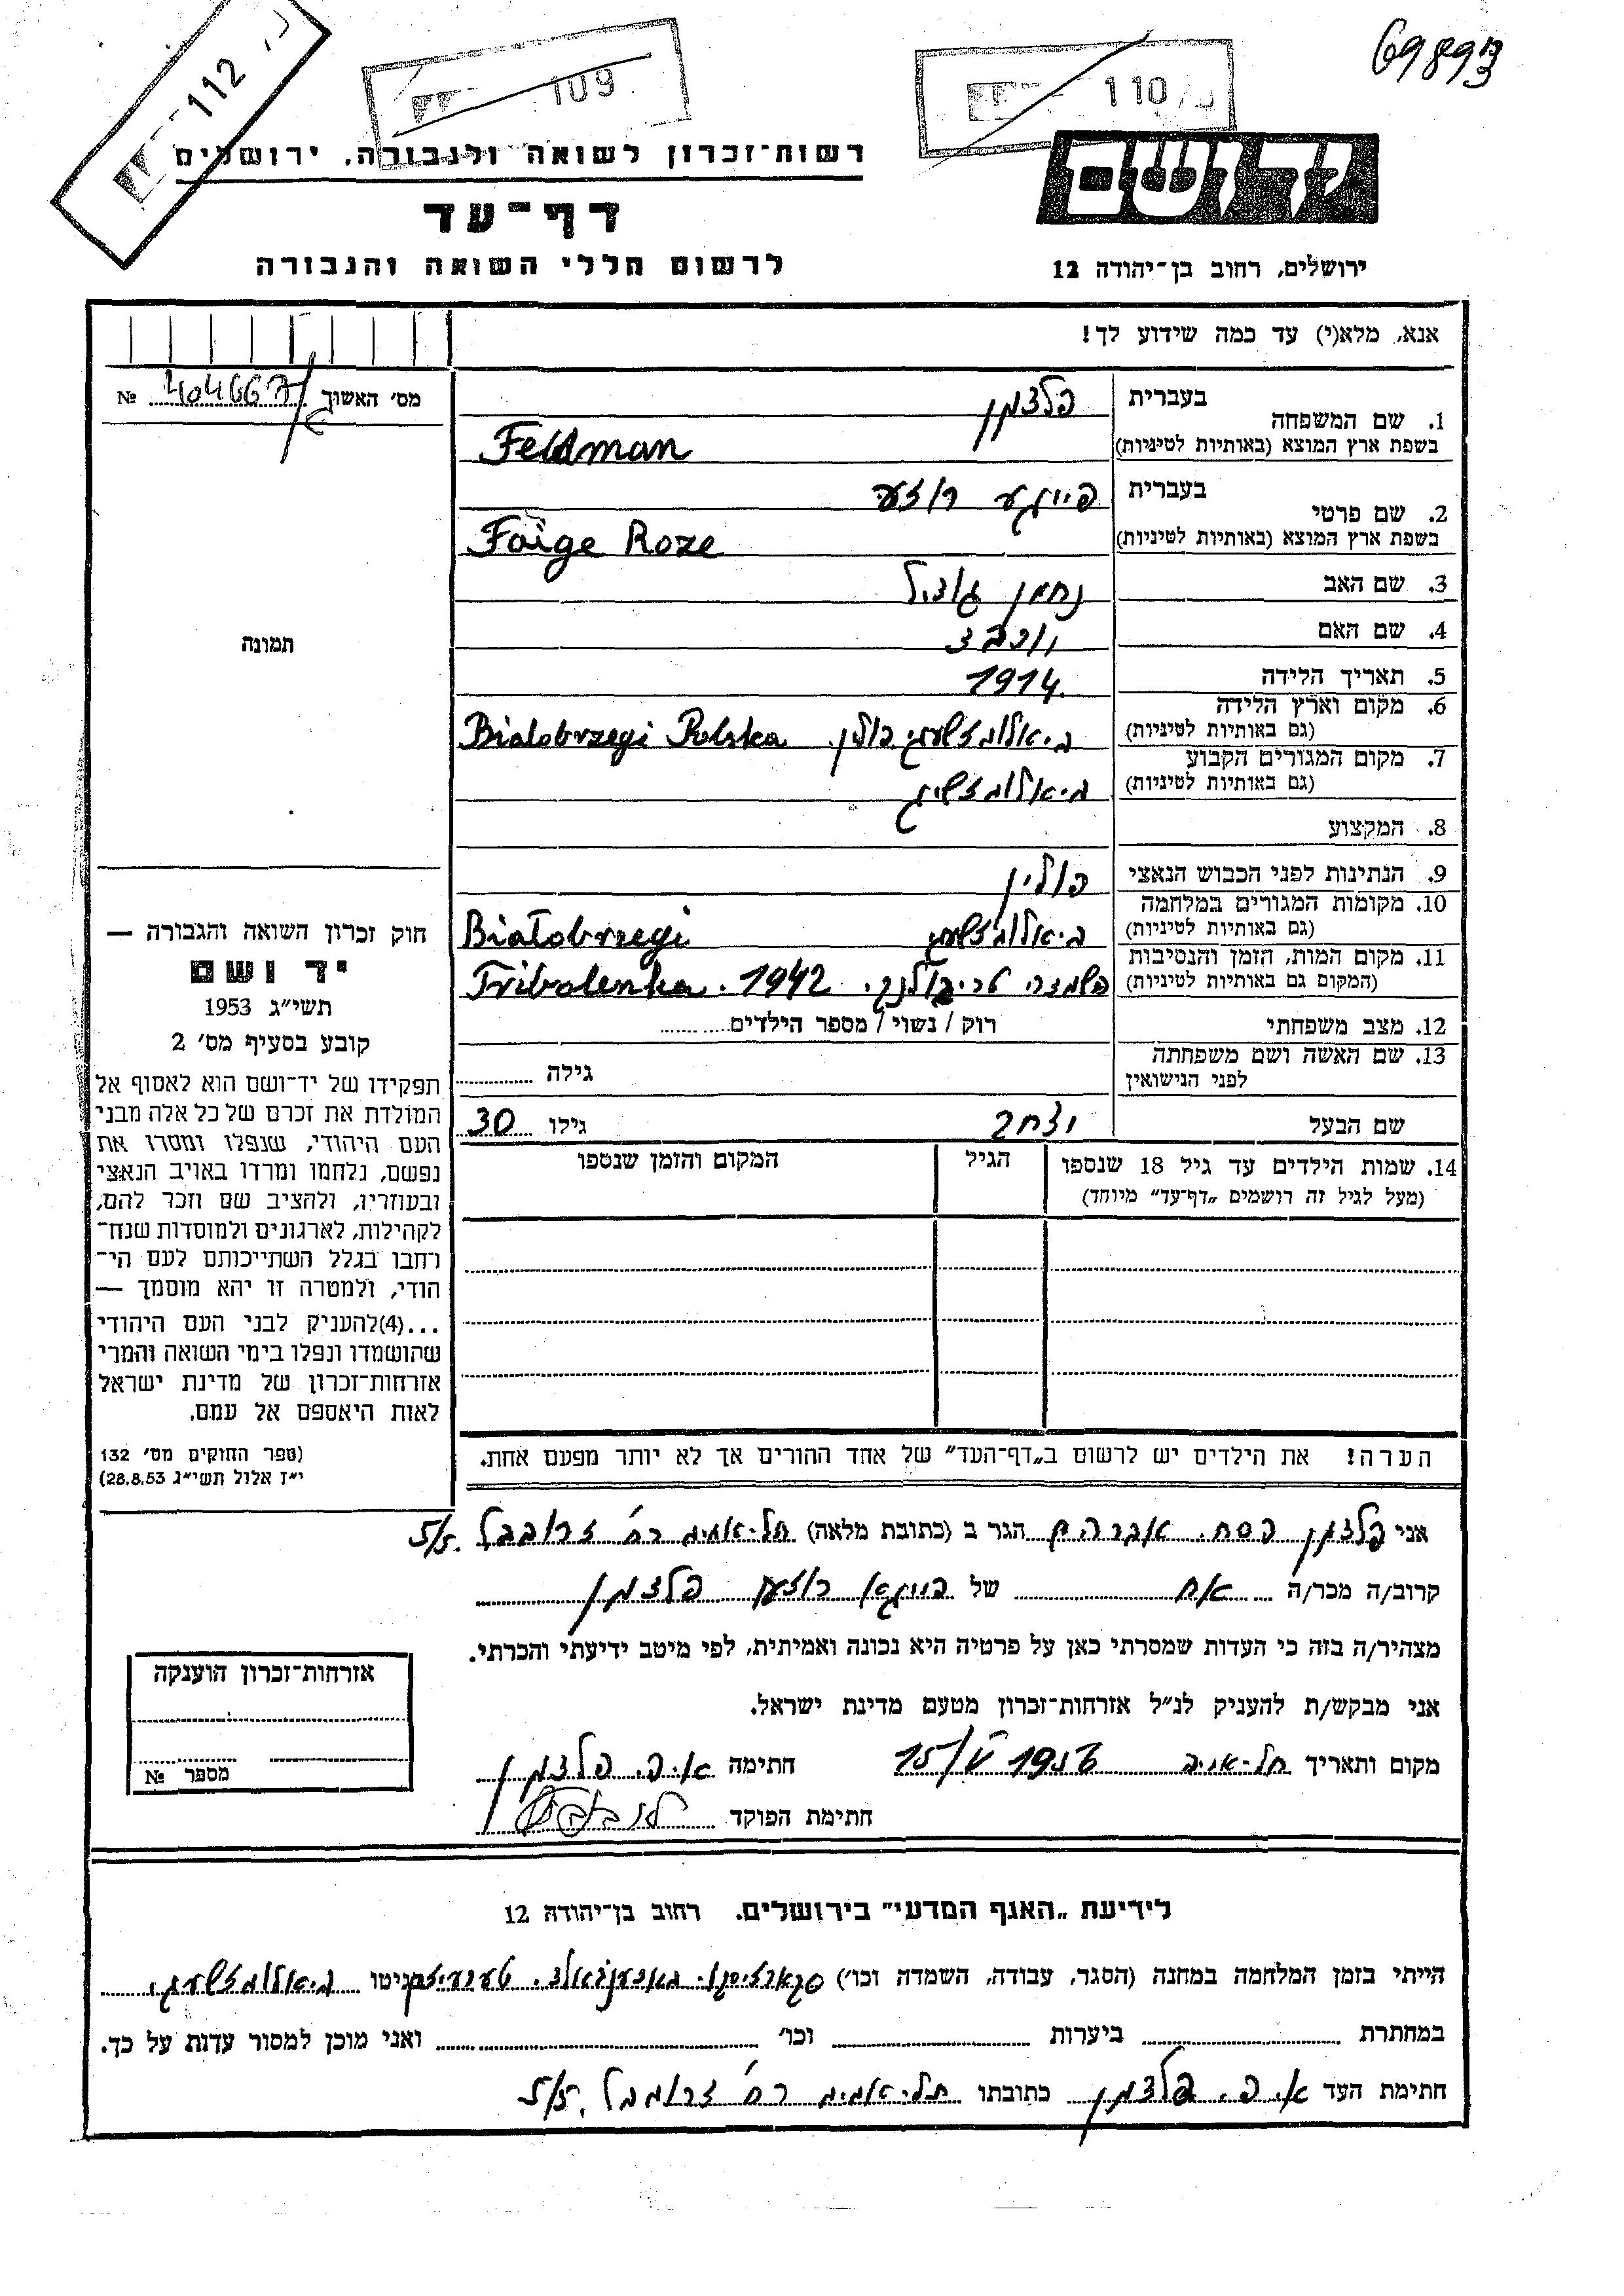 69893
112
109
110
רשות־זכרון לשואה ולגבורה, ירושלים
יד ושם
דף־עד
לרשום חללי השואה והגבורה
ירושלים, רחוב בן־יהודה 12
אנא, מלא(י) עד כמה שידוע לך!
מס׳ האשוך 404667 №
1. שם המשפחה
בעברית פלדמן
בשפת ארץ המוצא (באותיות לטיניות) Feldman
2. שם פרטי
בעברית פייגע רוזע
בשפת ארץ המוצא (באותיות לטיניות) Faige Roze
3. שם האב נחמן
4. שם האם
5. תאריך הלידה 1914
6. מקום וארץ הלידה
(גם באותיות לטיניות) ביאלובזשעגי פולין. Bialobrzegi Polska
7. מקום המגורים הקבוע
(גם באותיות לטיניות) ביאלובזשיגי
8. המקצוע
9. הנתינות לפני הכבוש הנאצי פולין
10. מקומות המגורים במלחמה
(גם באותיות לטיניות) ביאלובזשעגי Białobrzegi
11. מקום המות, הזמן והנסיבות
(המקום גם באותיות לטיניות) טריבולנקה. 1942. Tribolenka
12. מצב משפחתי רוק / נשוי / מספר הילדים
13. שם האשה ושם משפחתה
לפני הנישואין גילה
שם הבעל יצחק גילו 30
14. שמות הילדים עד גיל 18 שנספו
(מעל לגיל זה רושמים „דף־עד״ מיוחד)
הגיל
המקום והזמן שנספו
תמונה
חוק זכרון השואה והגבורה —
יד ושם
תשי״ג 1953
קובע בסעיף מס׳ 2
תפקידו של יד־ושם הוא לאסוף אל
המולדת את זכרם של כל אלה מבני
העם היהודי, שנפלו ומסרו את
נפשם, נלחמו ומרדו באויב הנאצי
ובעוזריו, ולהציב שם וזכר להם,
לקהילות, לארגונים ולמוסדות שנח־
רחבו בגלל השתייכותם לעם הי־
הודי, ולמטרה זו יהא מוסמך —
...(4)להעניק לבני העם היהודי
שהושמדו ונפלו בימי השואה והמרי
אזרחות־זכרון של מדינת ישראל
לאות היאספם אל עמם.
(ספר החוקים מס׳ 132
י״ז אלול תשי״ג 28.8.53)
הערה! את הילדים יש לרשום ב„דף־העד״ של אחד ההורים אך לא יותר מפעם אחת.
אני פלדמן פסח. אברהם הגר ב (כתובת מלאה) תל־אביב רח׳ זרובבל 5/5.
קרוב/ה מכר/ה אח של פייגא רוזע פלדמן
מצהיר/ה בזה כי העדות שמסרתי כאן על פרטיה היא נכונה ואמיתית, לפי מיטב ידיעתי והכרתי.
אני מבקש/ת להעניק לנ״ל אזרחות־זכרון מטעם מדינת ישראל.
מקום ותאריך תל־אביב 15/V 1956 חתימה א. פ. פלדמן
חתימת הפוקד
אזרחות־זכרון הוענקה
מספר №
לידיעת „האגף המדעי״ בירושלים. רחוב בן־יהודה 12
הייתי בזמן המלחמה במחנה (הסגר, עבודה, השמדה וכו׳) בוכענוואלד. בגיטו ביאלובזשעגי.
במחתרת ביערות וכו׳ ואני מוכן למסור עדות על כך.
חתימת העד א. פ. פלדמן כתובתו תל־אביב רח׳ זרובבל 5/5.